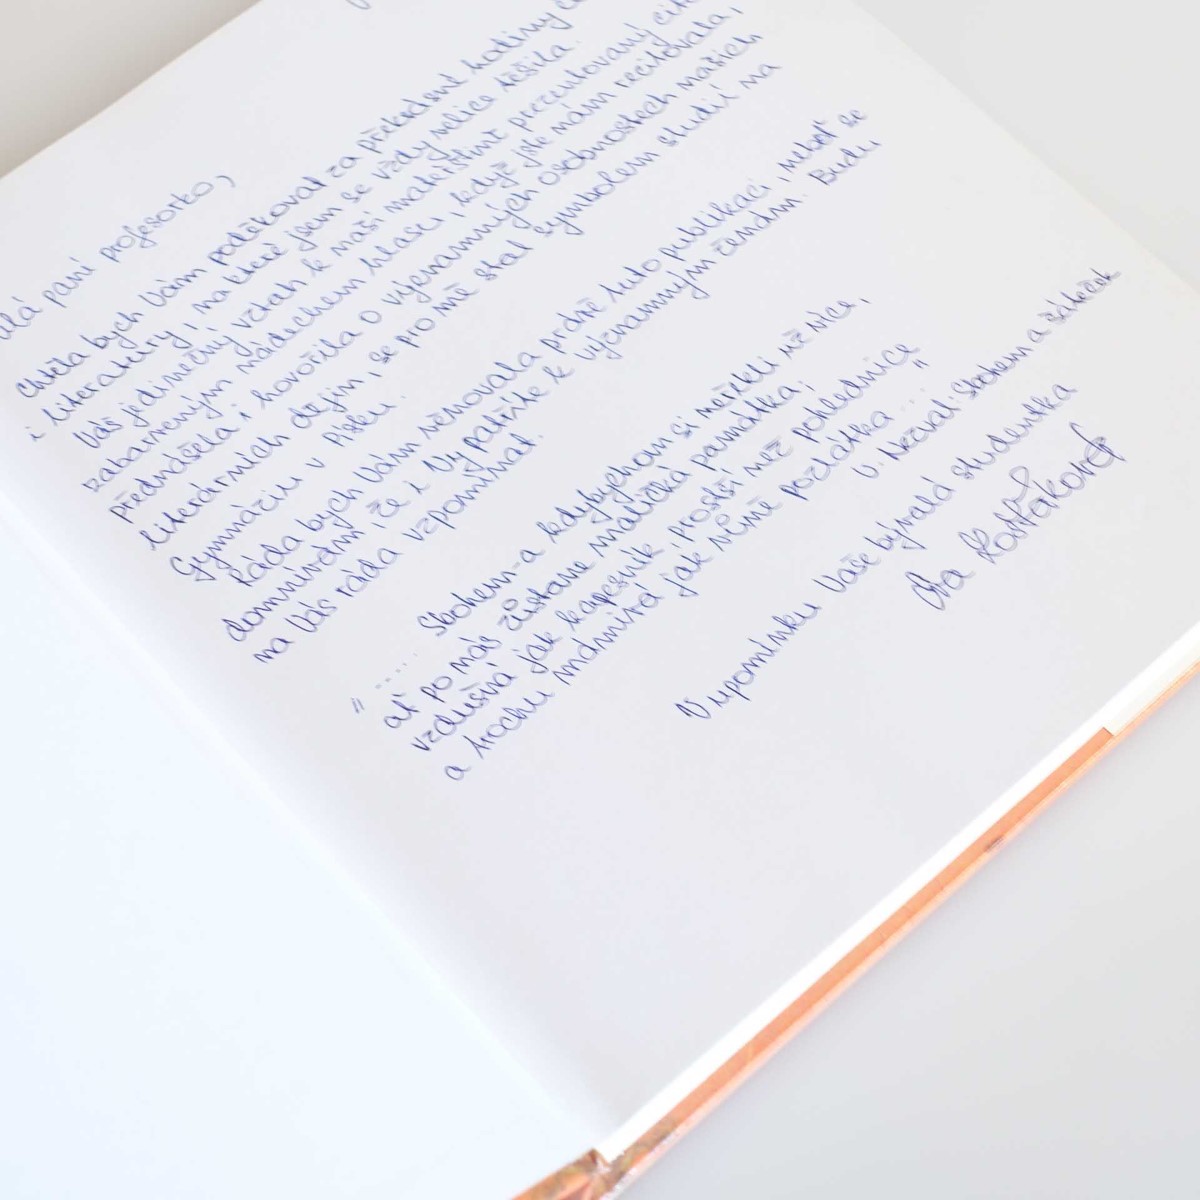 pani profesorko,
Chtěla bych Vám poděkovat za překrásné hodiny
i literatury, na které jsem se vždy velice těšila.
Váš jedinečný vztah k naší mateřštině prezentovaný
zabarveným nádechem hlasu, když jste nám recitovala,
přednášela i hovořila o významných osobnostech našich
literárních dějin, se pro mě stal symbolem studií na
Gymnáziu v Písku.
Ráda bych Vám věnovala právě tuto publikaci, neboť se
domnívám, že i Vy patříte k významným ženám. Budu
na Vás ráda vzpomínat.
"..... Sbohem a kdybychom si neřekli už více,
ať po nás zůstane maličká památka,
vzdušná jak kapesník prostší než pohlednice
a trochu mámivá jak vůně pozlátka ... "
V. Nezval: Sbohem a šáteček
V upomínku Vaše bývalá studentka